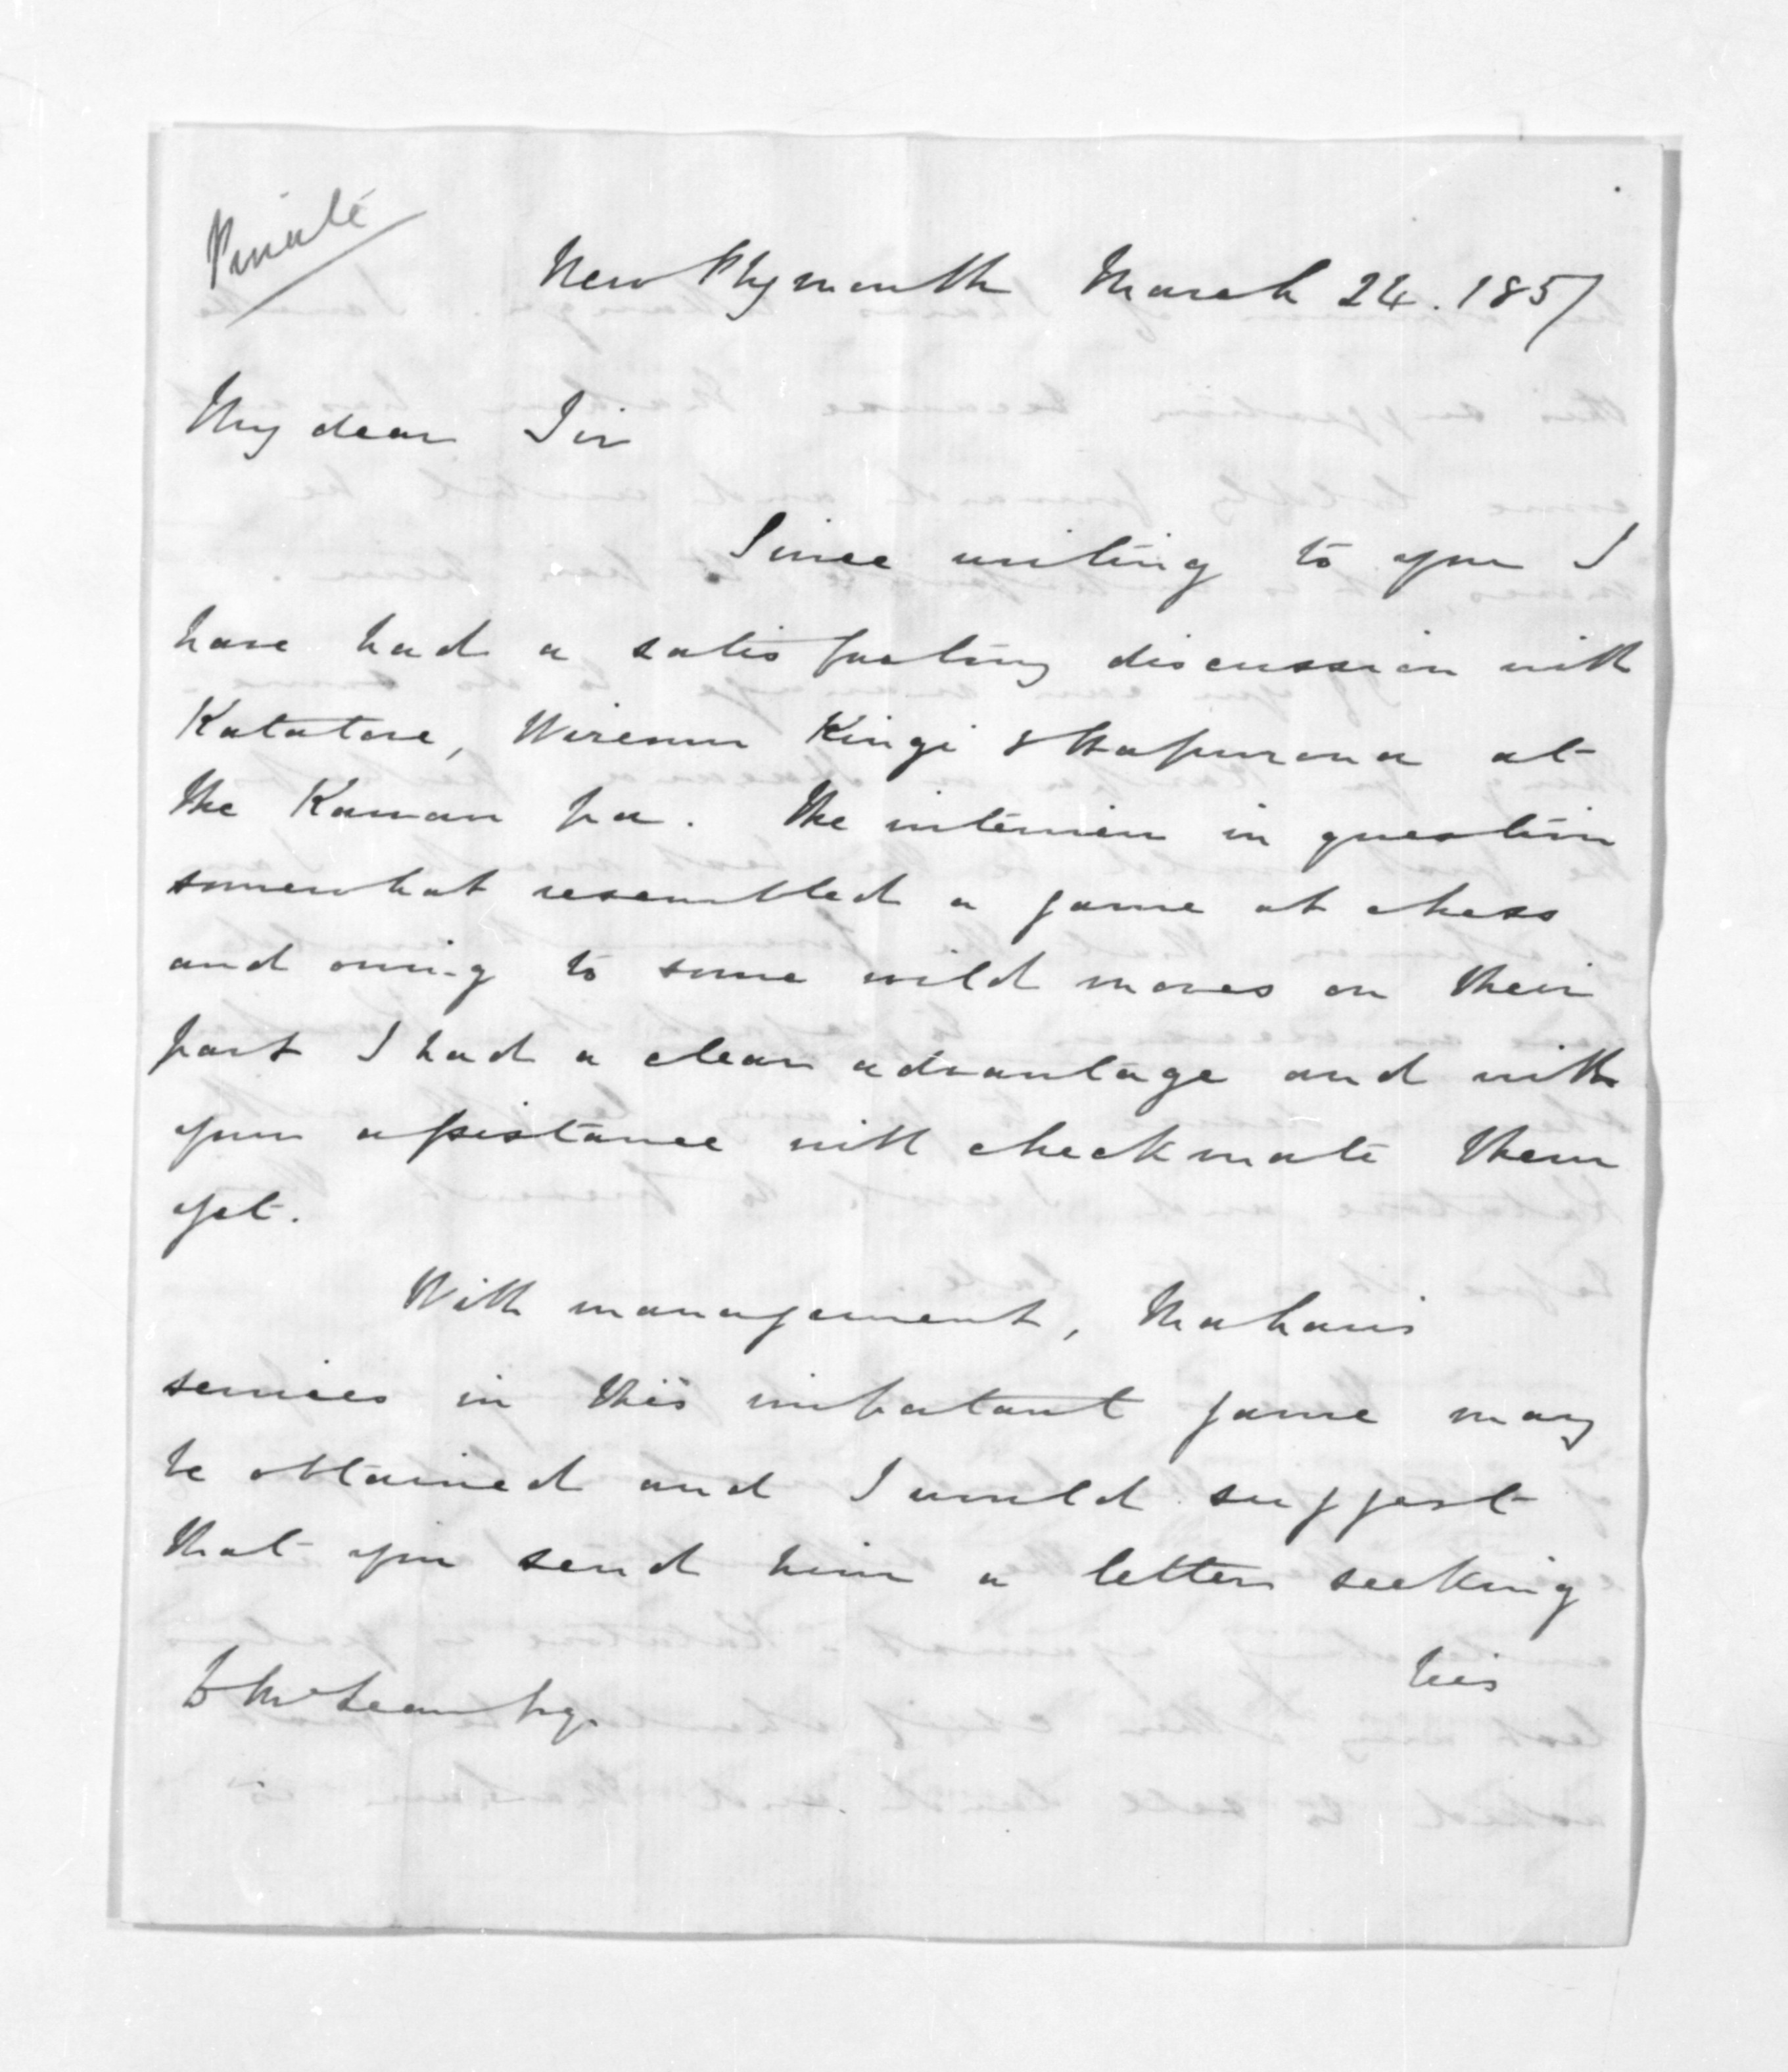 Private
New Plymouth March 24. 1857
My dear Sir
Since writing to you I
have had a satisfactory discussion with
Katatore, Wiremu Kingi & Hapurona at
the Kawau pa. The interview in question
somewhat resembled a game at chess
and owing to some wild moves on their
part I had a clear advantage and with
your assistance will checkmate them
yet.
With management, Mahau's
services in this important game may
be obtained and I would suggest
that you send him a letter seeking
his
D McLean Esq.